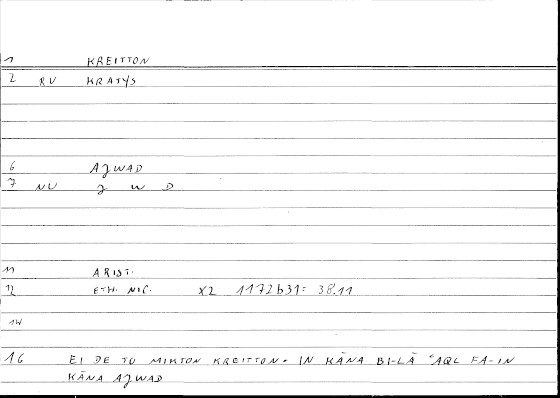 1 KREITTON
2 RU KRATYS
6 AJWAD
7 NU J W D
11 ARIST.
12 ETH. NIC. X2 1172b31: 38.11
14
16 EI DE TO MIKTON KREITTON. IN KĀNA BI-LĀ ʿAQL FA-IN
KĀNA AJWAD